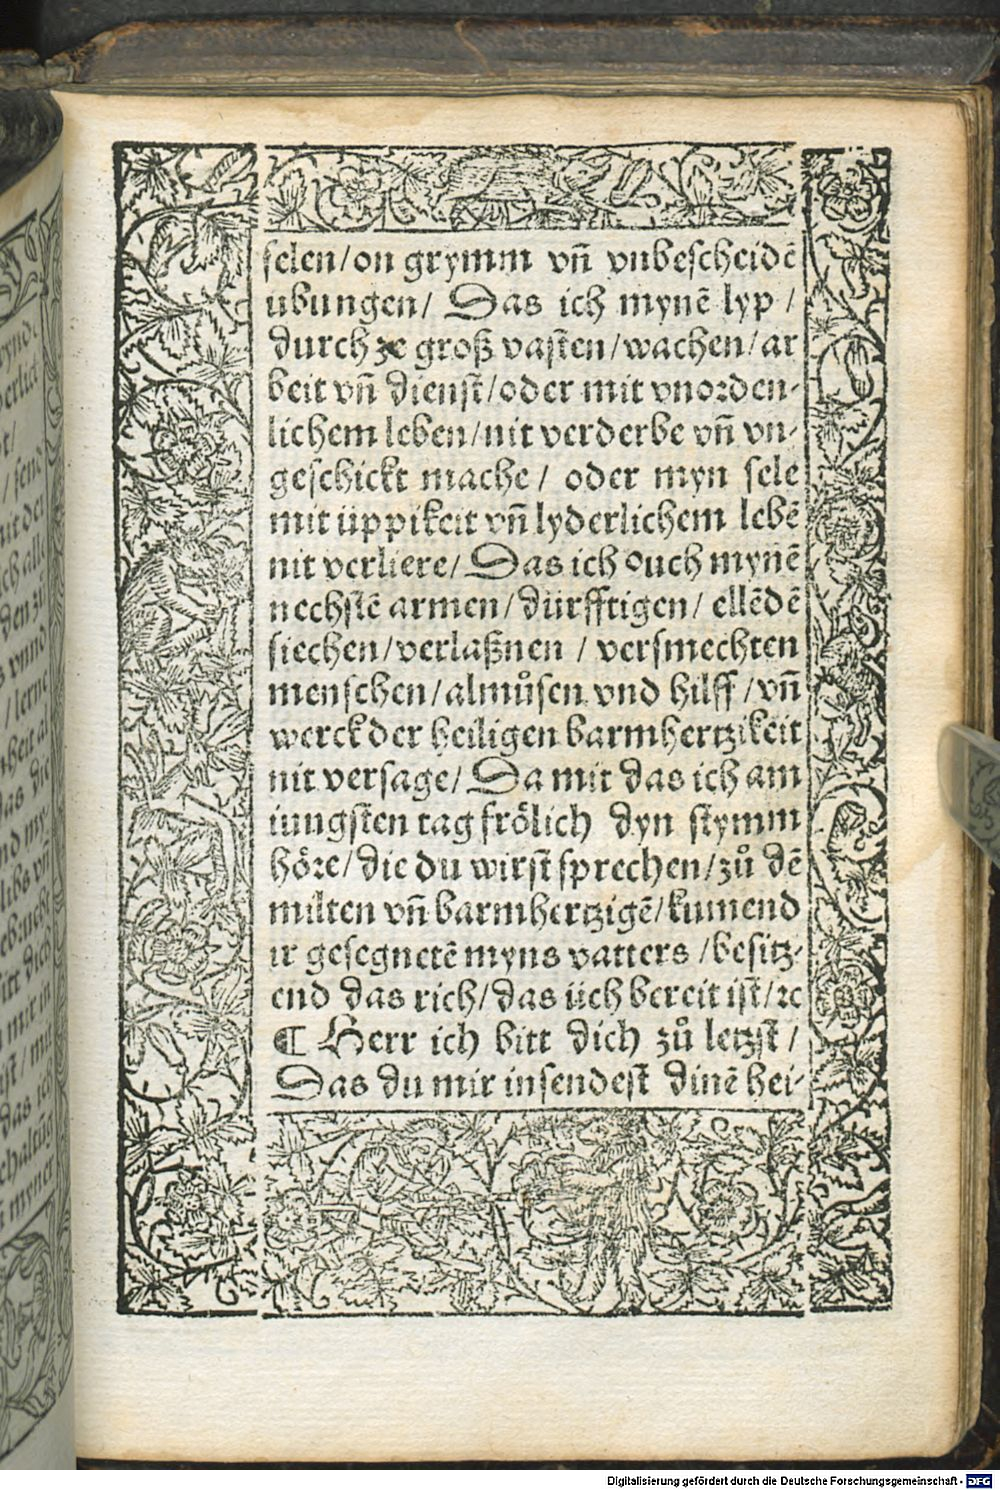 selen/on grymm vn̄ vnbescheidē
ubungen/ Das ich mynē lyp /
durch ze groß vasten/wachen/ar
beit vn̄ dienst/oder mit vnorden-
lichem leben/nit verderbe vn̄ vn-
geschickt mache/ oder myn sele
mit üppikeit vn̄ lyderlichem lebē
nit verliere/ Das ich ouch mynē
nechstē armen/dürfftigen/ ellēdē
siechen/verlaßnen / versmechten
menschen/almůsen vnd hilff/vn̄
werck der heiligen barmhertzikeit
nit versage/ Da mit das ich am
iungsten tag frölich dyn stymm
höre/die du wirst sprechen/zů dē
milten vn̄ barmhertzigē/kumend
ir gesegnetē myns vatters /besitz-
end das rich/das üch bereit ist/ꝛc
¶ Herr ich bitt dich zů letzst /
Das du mir insendest dinē hei-
Digitalisierung gefördert durch die Deutsche Forschungsgemeinschaft - DFG